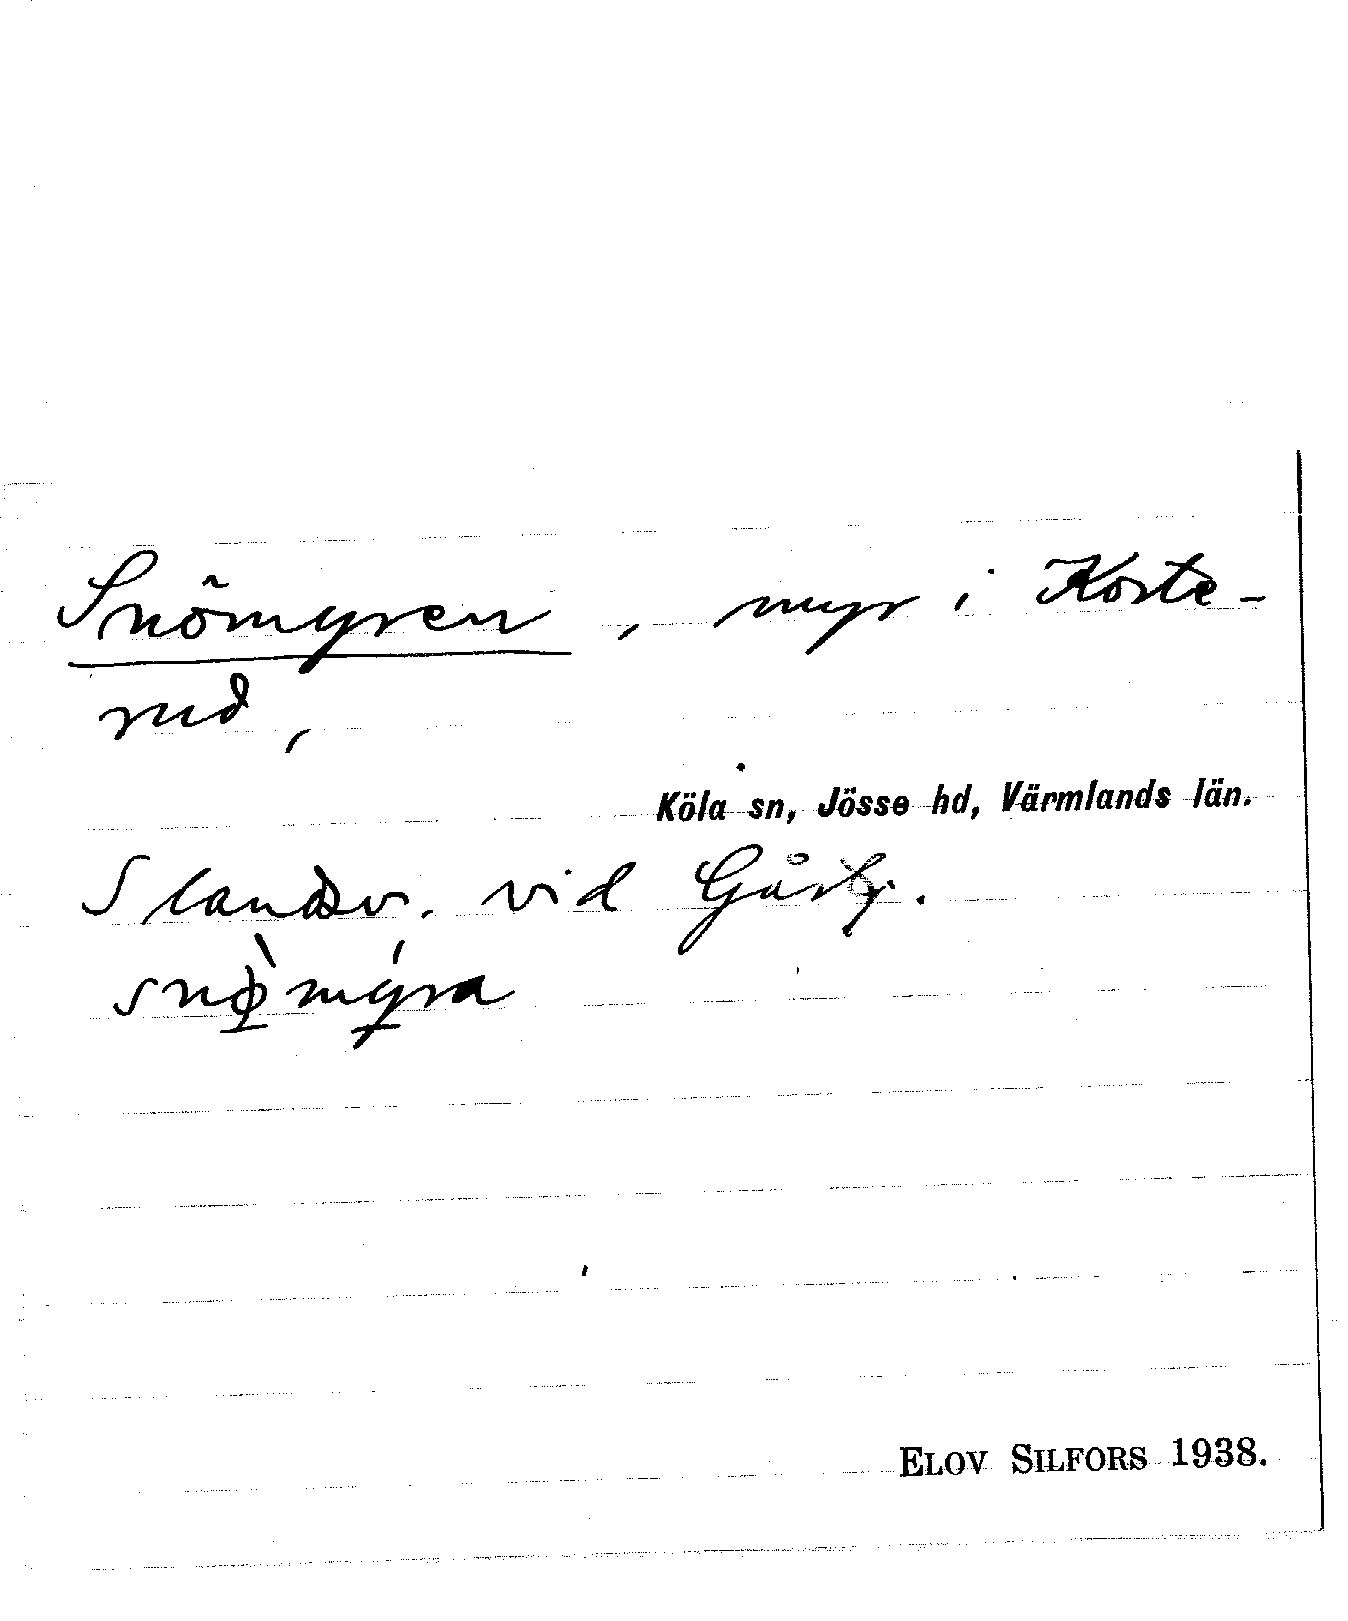 Snömyren, myr i Korte-
rud,
Köla sn, Jösse hd, Värmlands län.
S landsv. vid
snø̀mýra
ELOV SILFORS 1938.